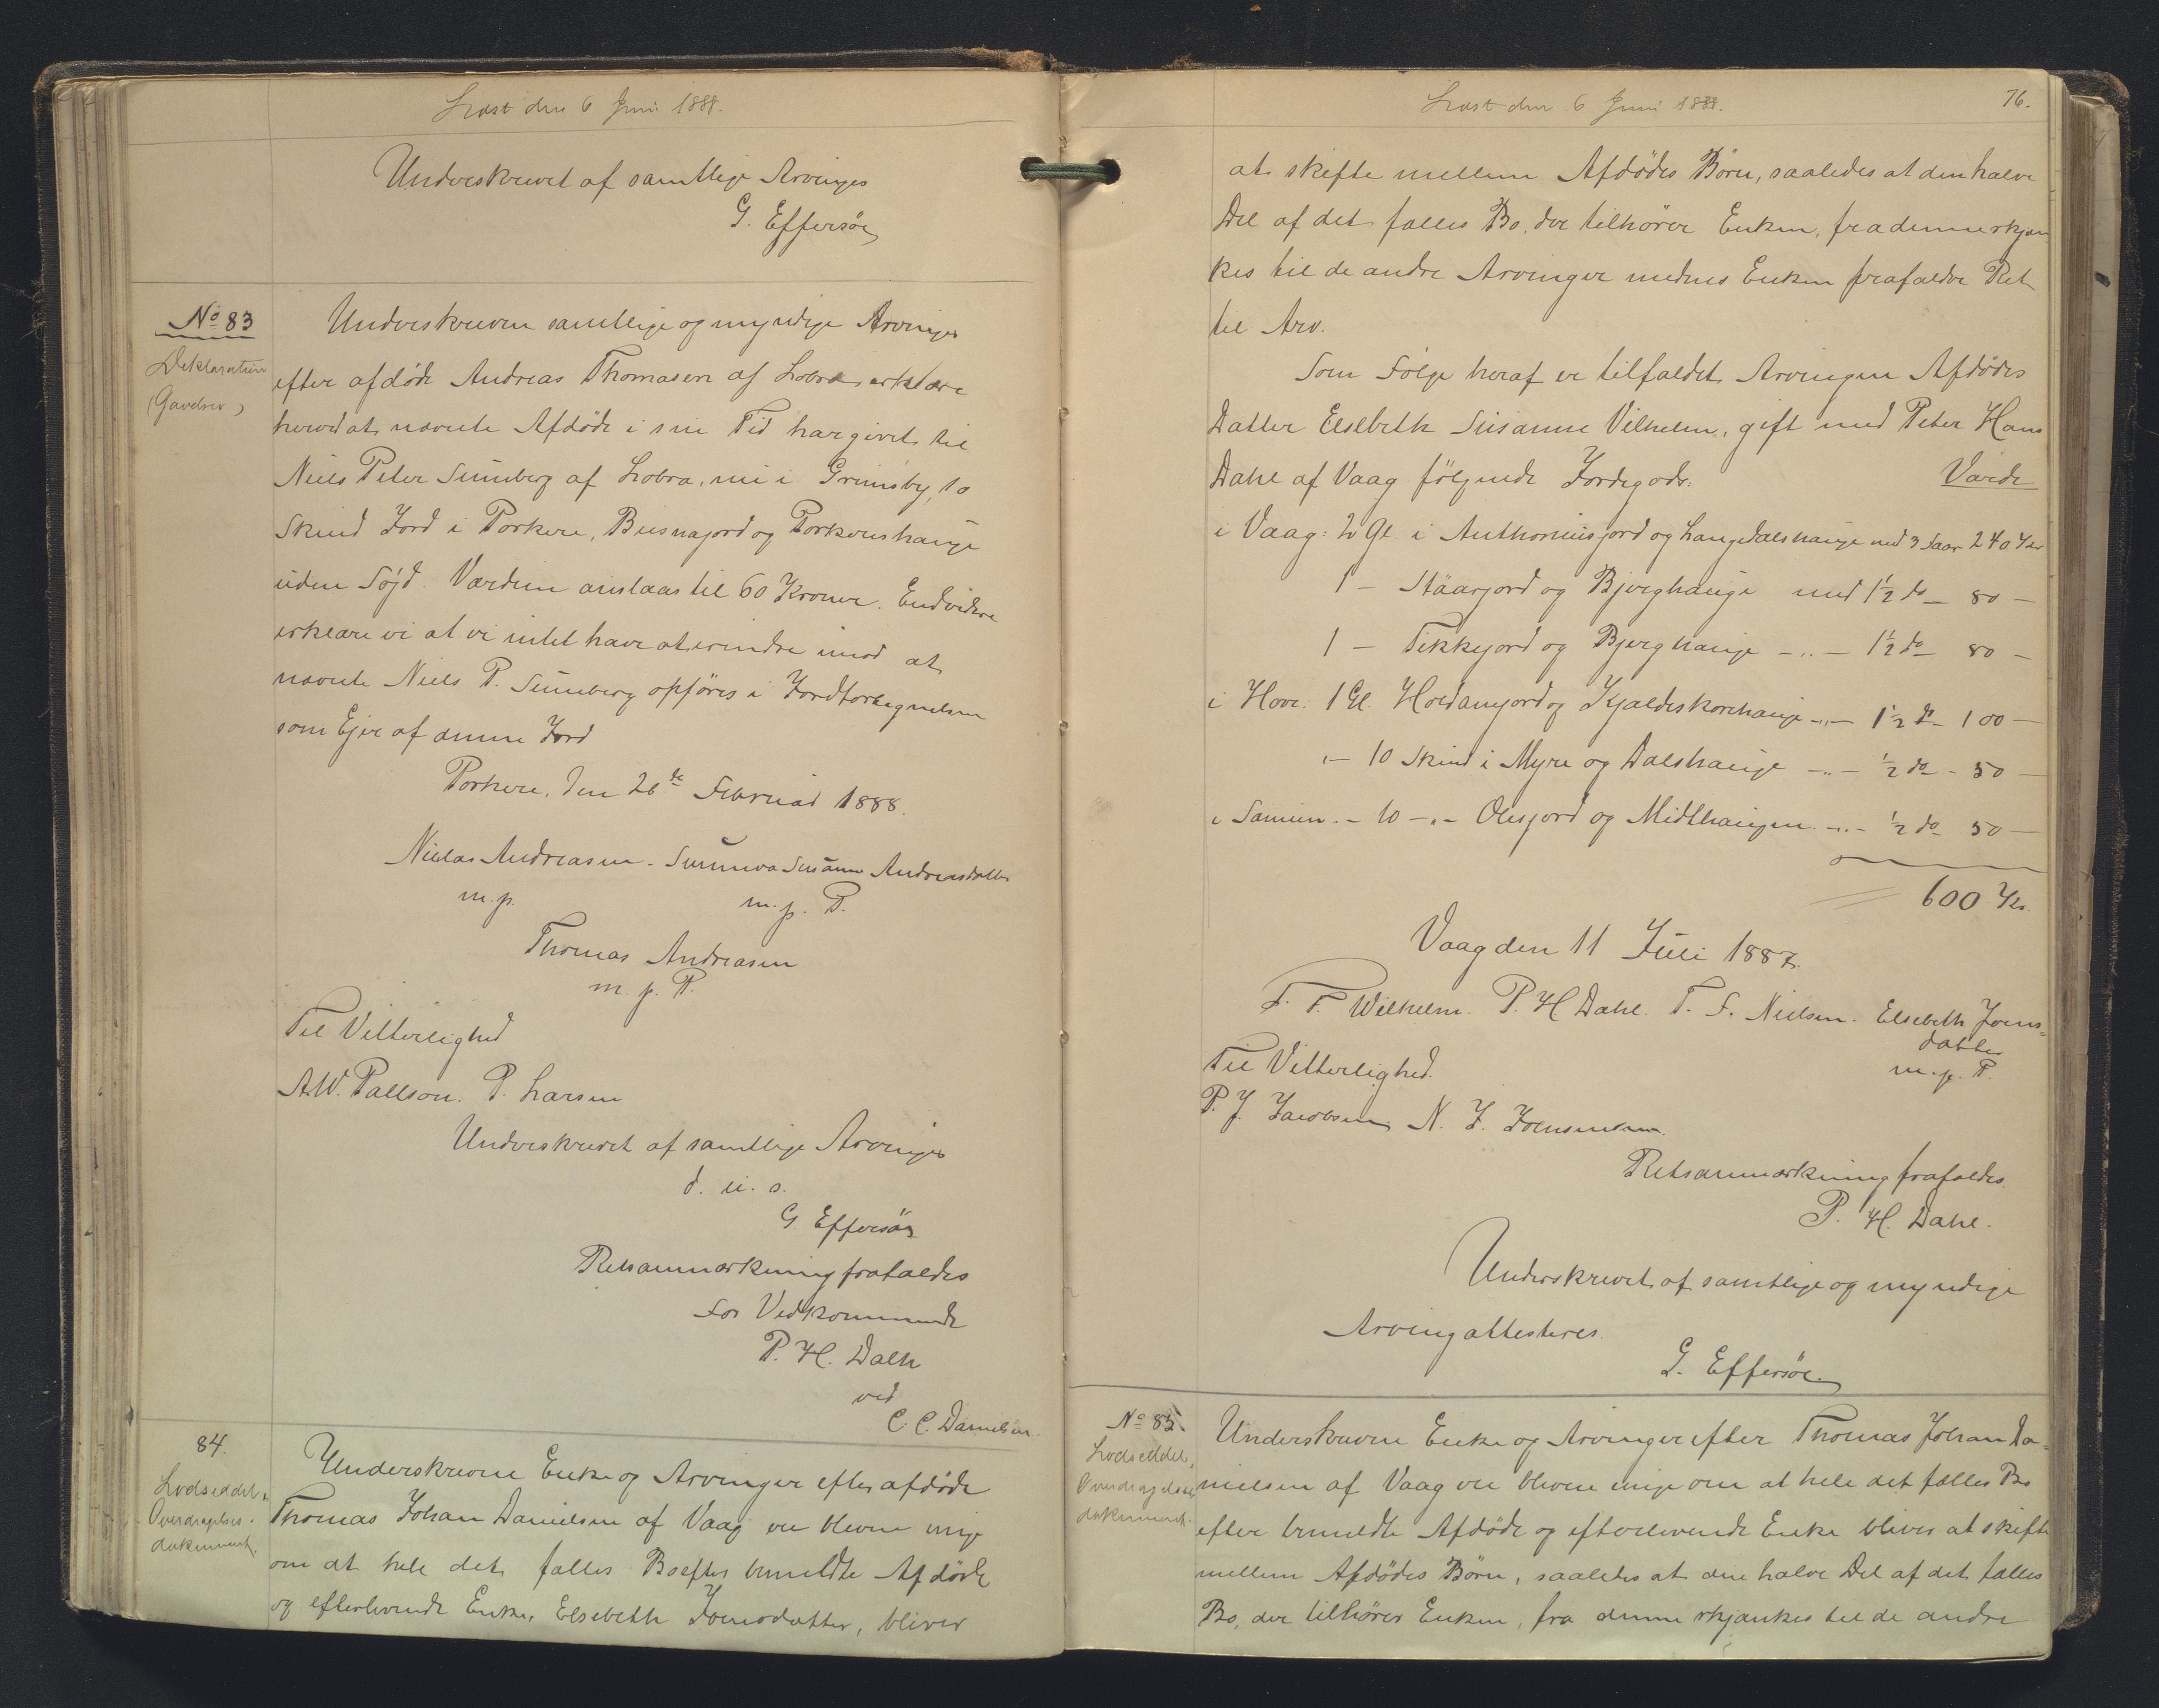 Læst den 6 Juni 1888.
Underskrevet af samtlige Arvinger
G. Effersöe
No 83
Deklaration
(Gavebrev)
Underskrevne samtlige og myndige Arvinger
efter afdöde Andreas Thomasen af Lobra erklære
herved at nævnte Afdöde i sin Tid har givet til
Niels Peter Sumberg af Lobra, nu i Grimsby, 10
Skind Jord i Porkere, Buisnajord og Porkerishauge
uden Söjd. Værdien anslaas til 60 Kroner. Endvidere
erklære vi at vi intet have at erindre imod at
nævnte Niels P. Sumberg opföres i Jordfortegnelsen
som Ejer af denne Jord
Porkere, den 26de Februar 1888.
Niclas Andreasen - Sunneva Susanne Andreasdatter
m.p. m.p. P.
Thomas Andreasen
m. p. P.
Til Vitterlighed
A.W. Pallson. P. Larsen
Underskrevet af samtlige Arvinger
d. u. s.
G. Effersöe
Retsanmærkning frafaldes
For Vedkommende
P. H. Dalh
ved
C. C. Danielsen.
84.
Lodseddel &
Overdragelses-
dokument.
Underskrevne Enke og Arvinger efter afdöde
Thomas Johan Danielsen af Vaag ere blevne enige
om at hele det fælles Bo efter bemeldte Afdöde
og efterlevende Enke, Elsebeth Joensdatter, bliver
Læst den 6 Juni 1888.
76.
at skifte mellem Afdödes Börn, saaledes at den halve
Del af det fælles Bo, der tilhörer Enken, fra denne skjæn
kes til de andre Arvinger medens Enken frafalder Ret
til Arv.
Som Fölge heraf er tilfaldet Arvingen Afdödes
Datter Elsebeth Susanne Vilhelm, gift med Peter Hans
Dahl af Vaag fölgende Jordegods: Værdi
i Vaag: 2 Gl. i Anthoniusjord og Langedalshauge med 3 Faar 240 Kr
1 - Stäarjord og Bjerghauge med 1½ do - 80 -
1 - Tekkejord og Bjerghauge - „ - 1½ do - 80 -
i Hove: 1 Gl. Hoidamjord og Kjældeskorehauge - „ - 1½ do - 100 -
„ - 10 Skind i Myre og Dalshauge - „ - ½ do - 50 -
i Samien. - 10 - „ - Olesjord og Midthaugen - „ - ½ do 50 -
600 Kr.
Vaag den 11 Juli 1887.
F. F. Wilhelm. P. H Dahl. T. F. Nielsen. Elsebeth Joens=
datter
m. p. P.
Til Vitterlighed.
P. J. Jacobsen N. J. Joensen
Retsanmærkning frafaldes.
P. H. Dahl.
Underskrevet af samtlige og myndige
Arving attesteres.
G. Effersöe.
No 85.
Lodseddel,
Overdragelses
dokument.
Underskrevne Enke og Arvinger efter Thomas Johan Da-
nielsen af Vaag ere blevne enige om at hele det fælles Bo
efter bemeldte Afdöde og efterlevende Enke bliver at skifte
mellem Afdödes Börn, saaledes at den halve Del af det fælles
Bo, der tilhörer Enken, fra denne skjænkes til de andre